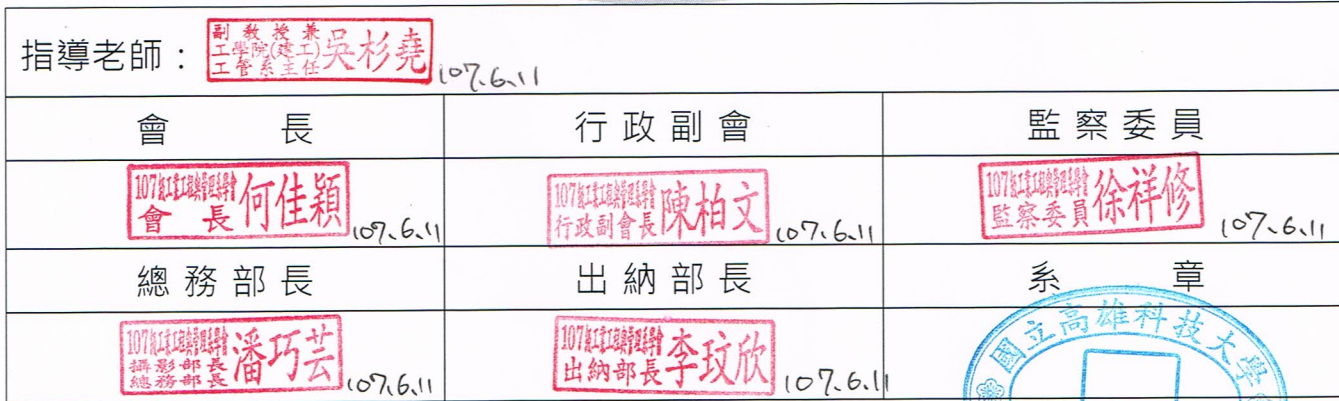 指導老師：
副教授兼
工學院(建工)
工管系主任 吳杉堯
107.6.11
會長 行政副會 監察委員
107級工業工程與管理系學會
會長 何佳穎
107.6.11
107級工業工程與管理系學會
行政副會長 陳柏文
107.6.11
107級工業工程與管理系學會
監察委員 徐祥修
107.6.11
總務部長 出納部長 系章
107級工業工程與管理系學會
攝影部長
總務部長 潘巧芸
107.6.11
107級工業工程與管理系學會
出納部長 李玟欣
107.6.11
國立高雄科技大學